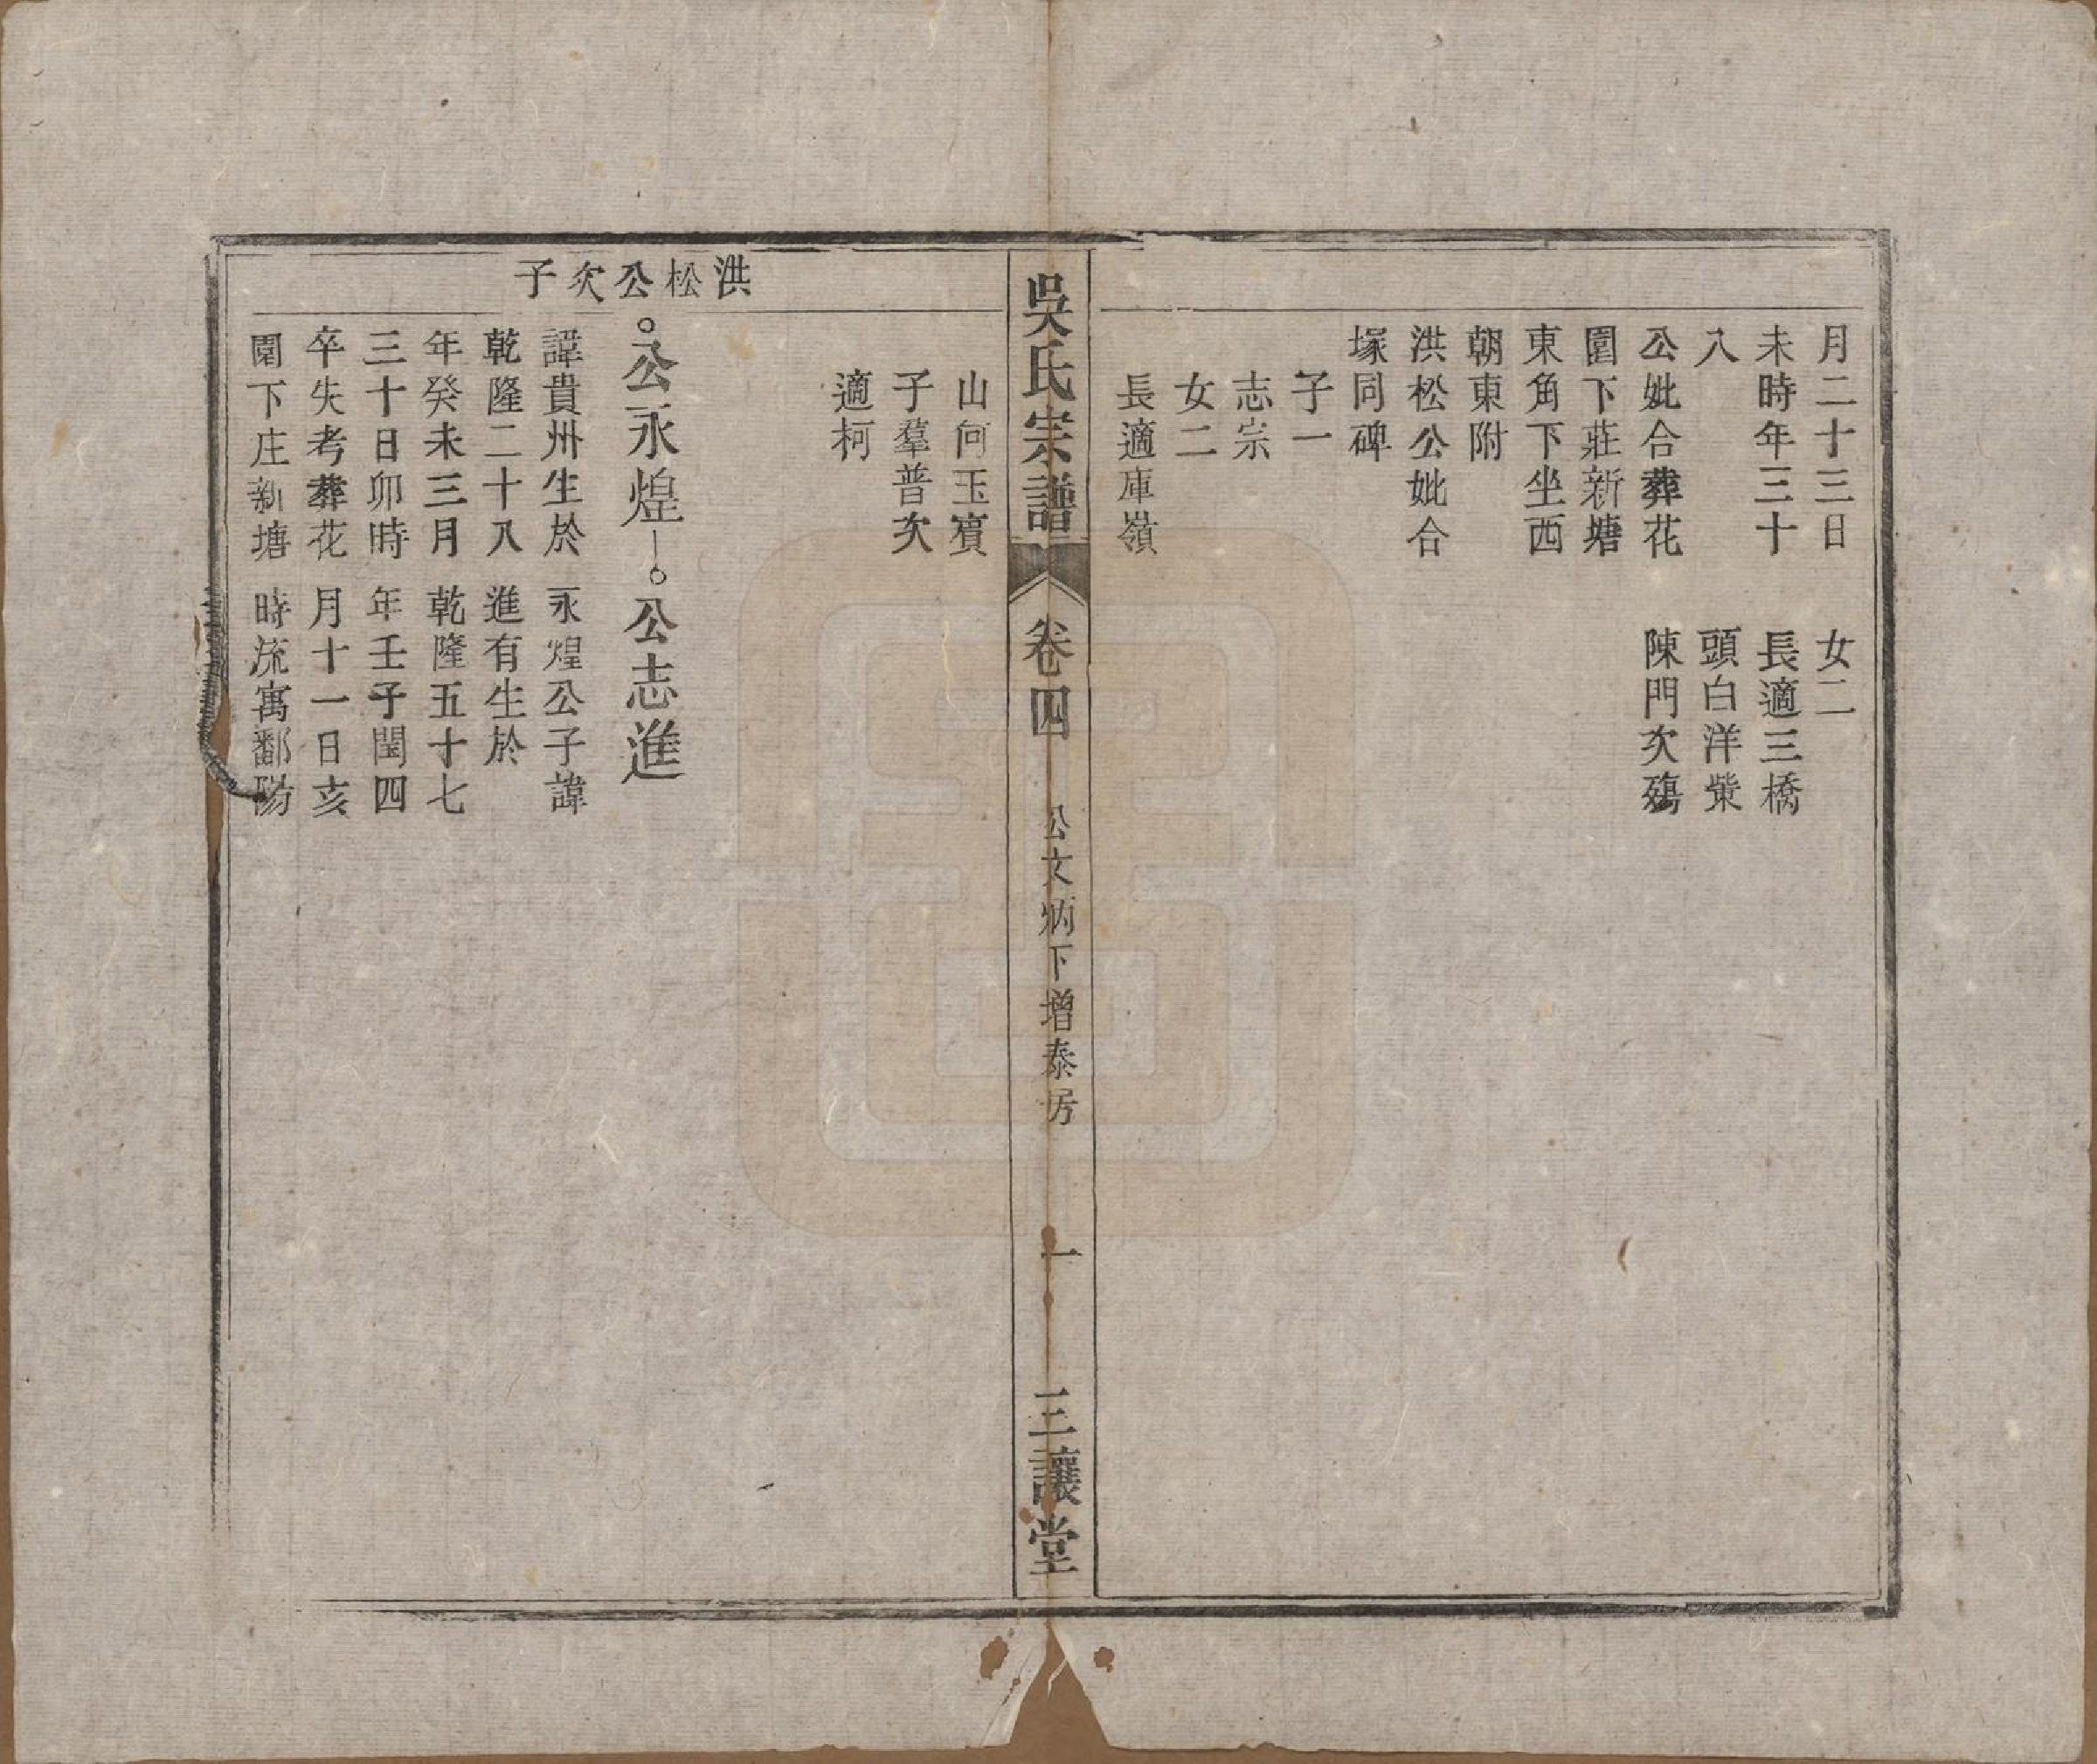 月二十三日
未時年三十
八
公妣合葬花
園下莊新塘
東角下坐西
朝東附
洪松公妣合
塚同碑
子一
志宗
女二
長適庫嶺
女二
長適三橋
頭白洋柴
陳門次殤
吳氏宗譜
卷四
公文炳下增泰房
一
三讓堂
山何玉賓
子羣普次
適柯
洪松公次子
公永煌
公志進
諱貴州生於
乾隆二十八
年癸未三月
三十日卯時
卒失考葬花
園下庄新塘
永煌公子諱
進有生於
乾隆五十七
年壬子閏四
月十一日亥
時流寓鄱陽